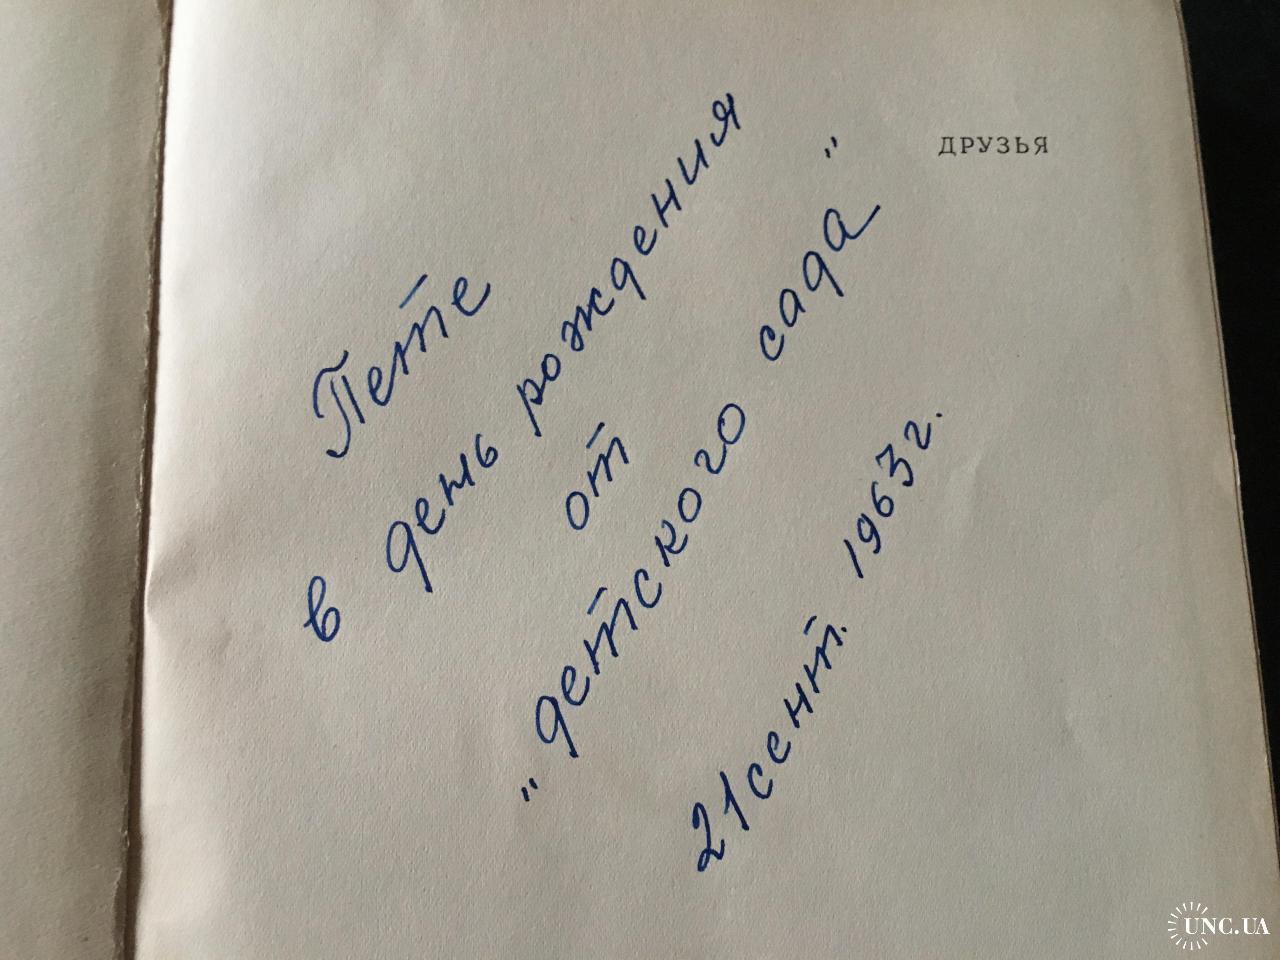 ДРУЗЬЯ
Пете
в день рождения
от
„детского сада"
21 сент. 1963 г.
UNC.UA